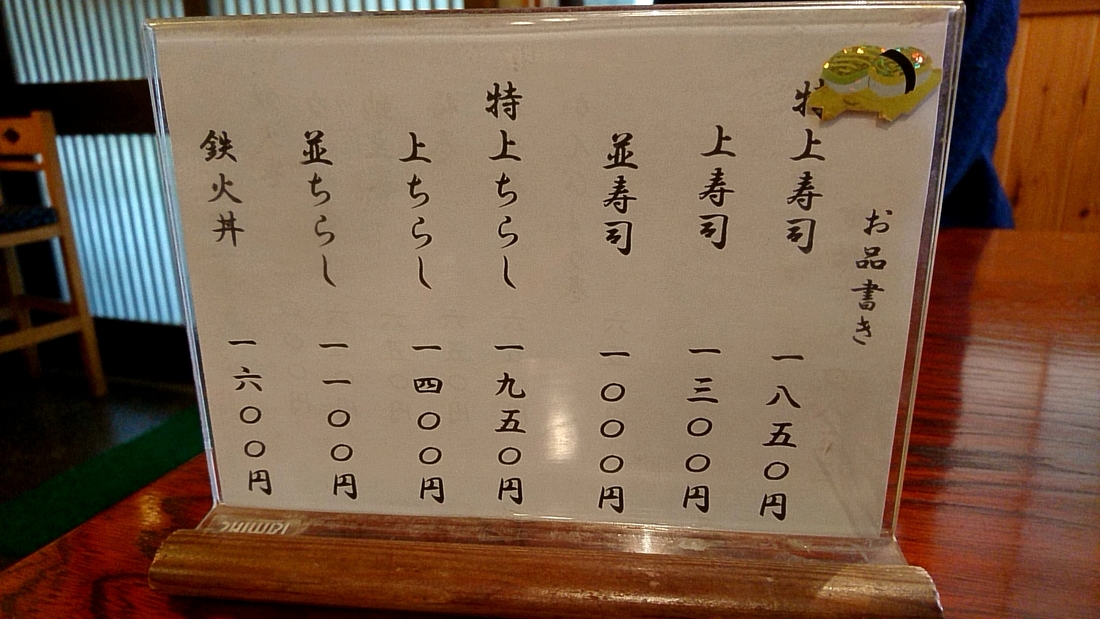 お品書き
特上寿司 一八五〇円
上寿司 一三〇〇円
並寿司 一〇〇〇円
特上ちらし 一九五〇円
上ちらし 一四〇〇円
並ちらし 一一〇〇円
鉄火丼 一六〇〇円